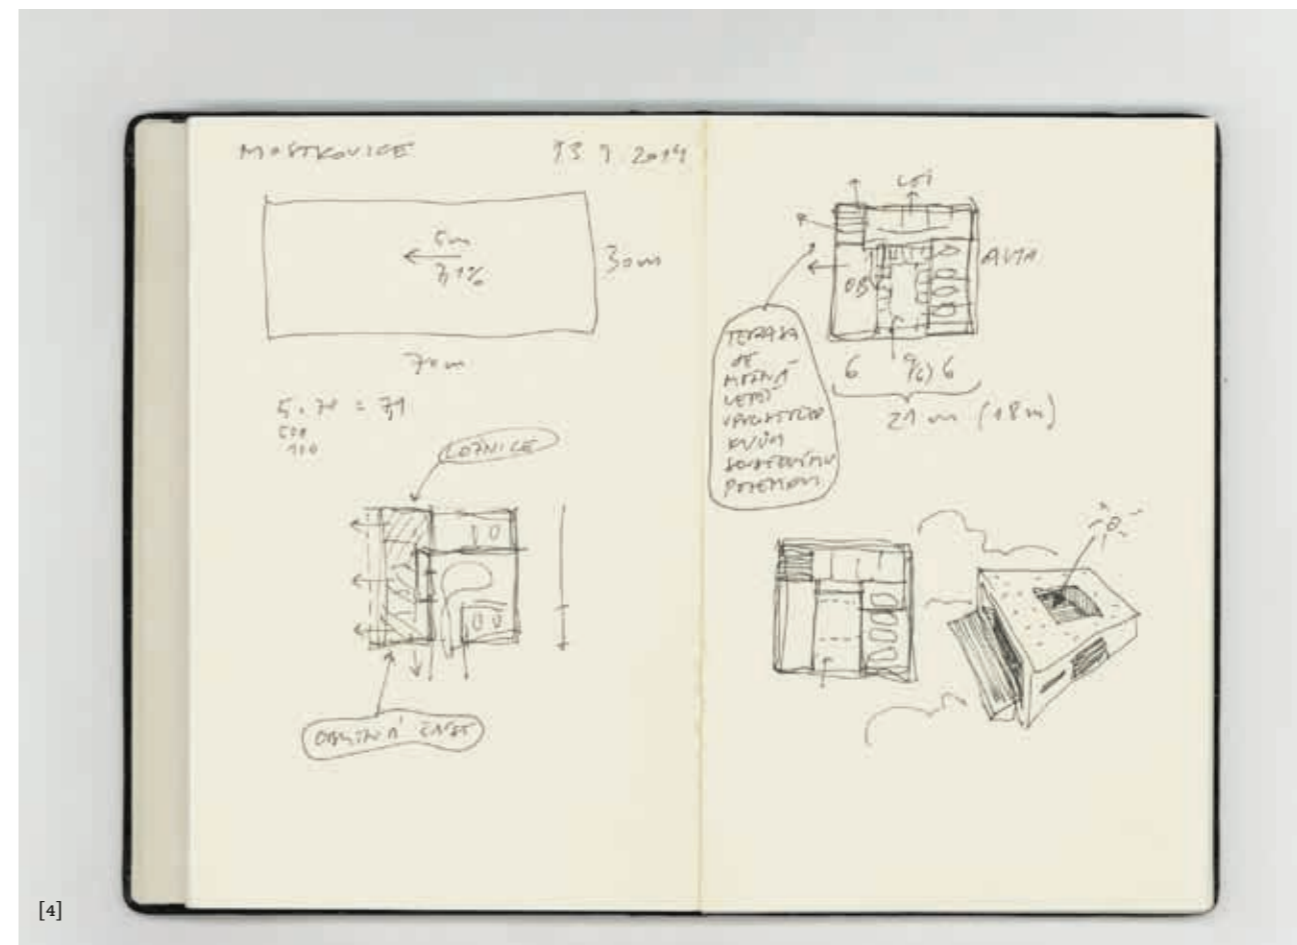 MOSTKOVICE
13 9 2014
5m
7,1%
30m
70m
5 . 70 = 7,1
500
100
LOŽNICE
OBYTNÁ ČÁST
LOŽ
AUTA
OB
TERASA
JE
MOŽNÁ
LEPŠÍ
KVŮLI
SOUSEDNÍMU
POZEMKU
6 9(6) 6
21 m (18m)
[4]